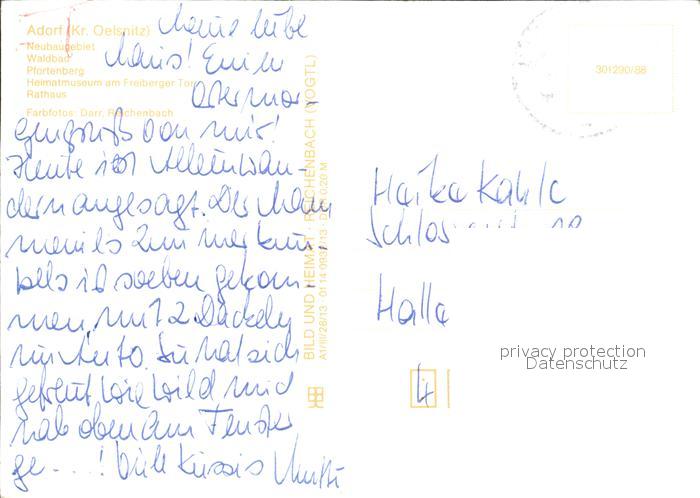 Adorf (Kr. Oelsnitz)
Neubaugebiet
Waldbad
Pfortenberg
Heimatmuseum am Freiberger Tor
Rathaus
Farbfotos: Darr, Reichenbach
Meine liebe
Maus! Einen
Ostermor-
gengruß von mir!
Heute ist Alleinwan-
dern angesagt. Der
zum
ist soeben gekom
men, mit 2 Dackeln
im Auto. Sie hat sich
gefreut wie wild und
hab oben am Fenster
ge...! Viele Küssis Mutti
BILD UND HEIMAT REICHENBACH (VOGTL)
A1/III/26/13
301290/88
Heike Kahle
Schlos
Halle
4
privacy protection
Datenschutz